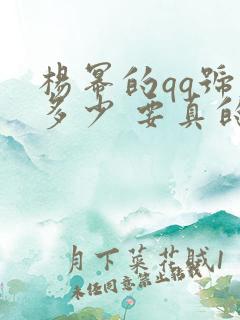 楊冪的qq號
多少 要真的
月下菜花賊1
未經同意禁止轉載